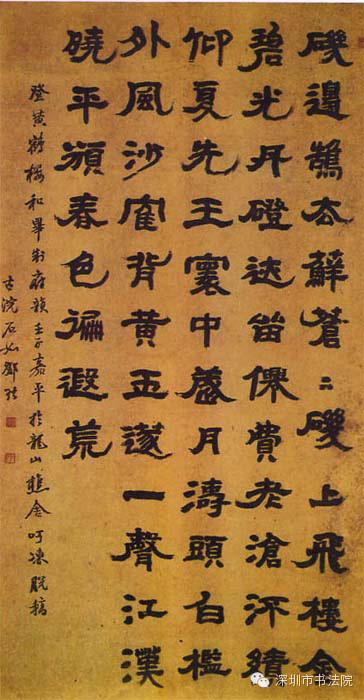 磯邊鵠立蘚蒼〻磯上飛樓金
碧光丹磴迖留倮費老滄績
仰夏先王寰中歲月濤頭白檻
外風沙寉背黃玉篴一聲江漢
曉平頒春色徧遐荒
登黃鶴樓和畢制府韻壬子嘉平於龍山樵舍呵凍脫稿
古浣石如鄧琰
深圳市书法院